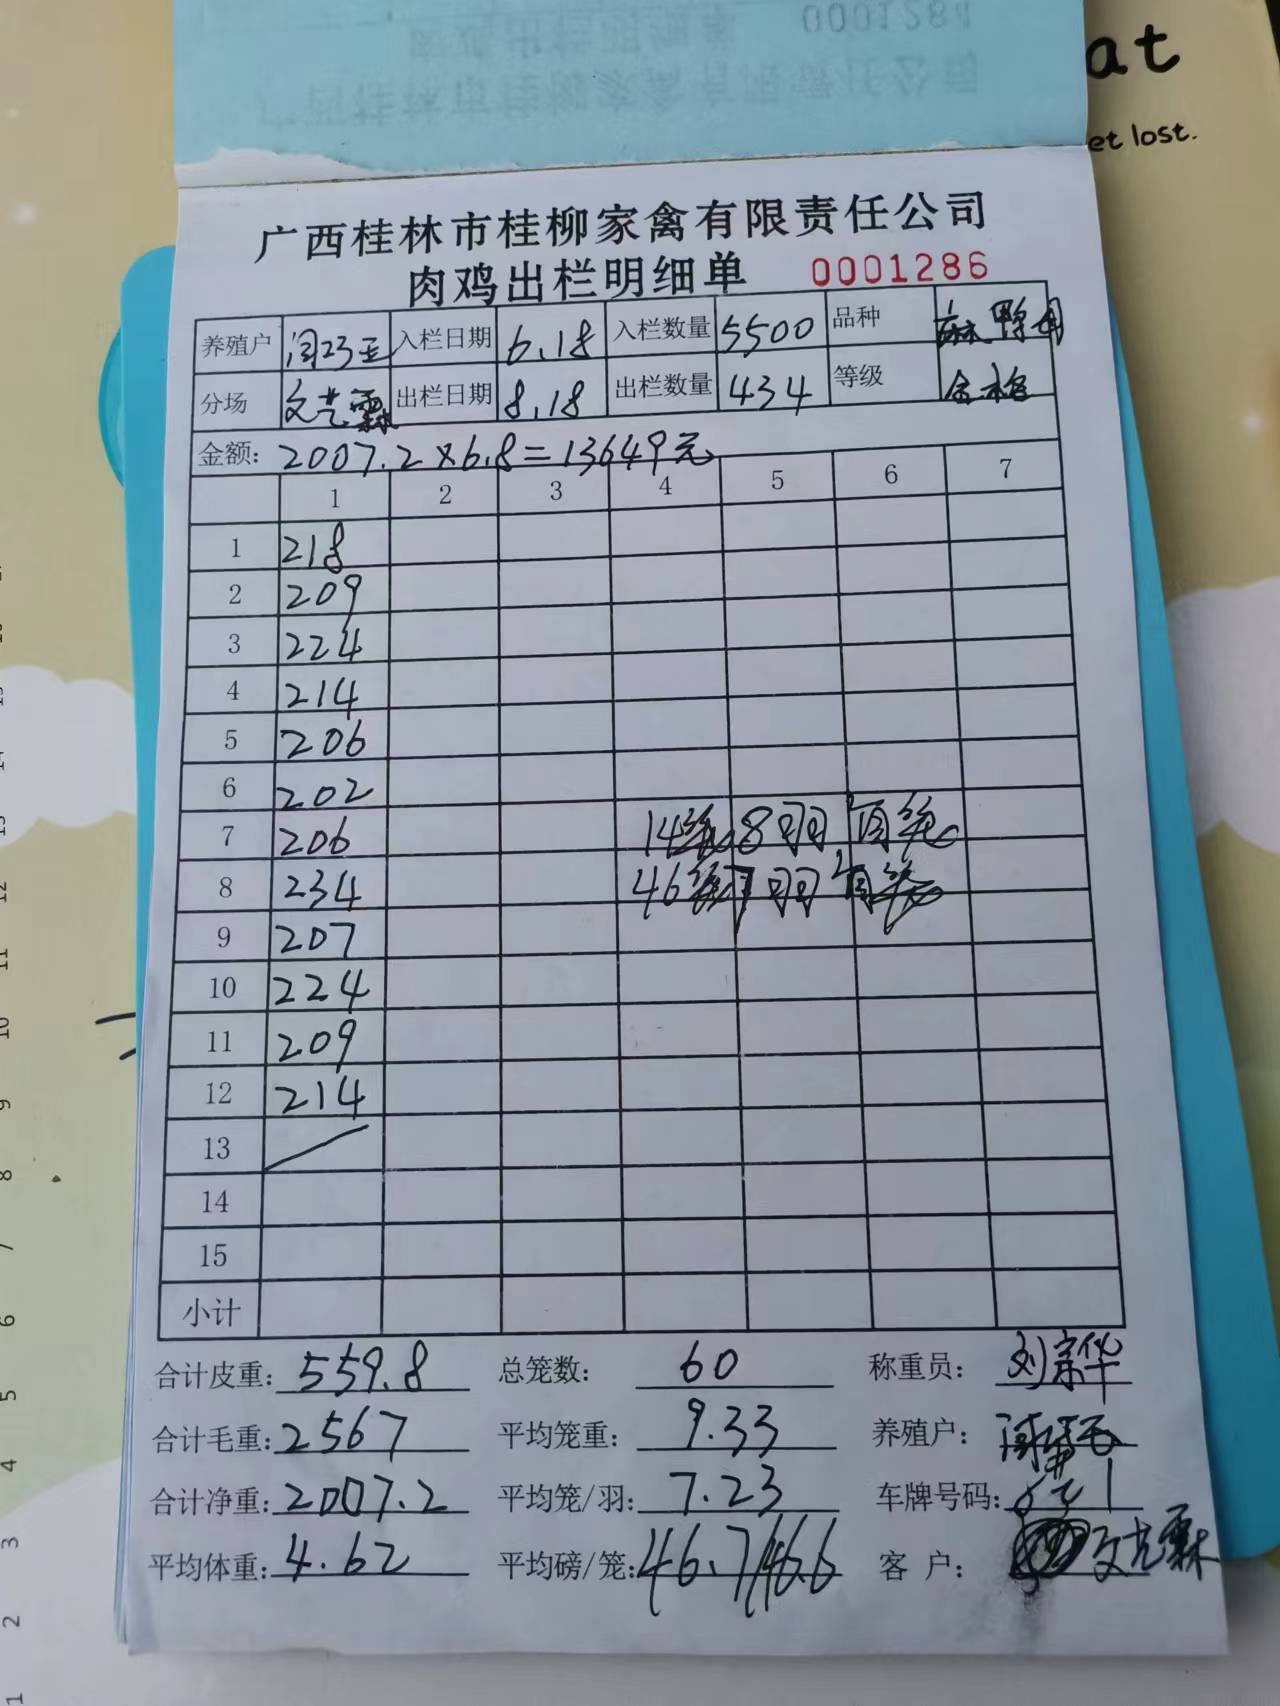 at
et lost.
0001284
广西桂林市桂柳家禽有限责任公司
肉鸡出栏明细单 0001286
养殖户 入栏日期 6.18 入栏数量 5500 品种 麻鸭母
分场 出栏日期 8.18 出栏数量 434 等级 合格
金额: 2007.2×6.8=13649元
1 2 3 4 5 6 7
1 218
2 209
3 224
4 214
5 206
6 202
7 206 14笼 8羽
8 234 46笼 7羽
9 207
10 224
11 209
12 214
13
14
15
小计
合计皮重: 559.8 总笼数: 60 称重员: 刘宗华
合计毛重: 2567 平均笼重: 9.33 养殖户:
合计净重: 2007.2 平均笼/羽: 7.23 车牌号码:
平均体重: 4.62 平均磅/笼: 46.7/46.6 客 户: